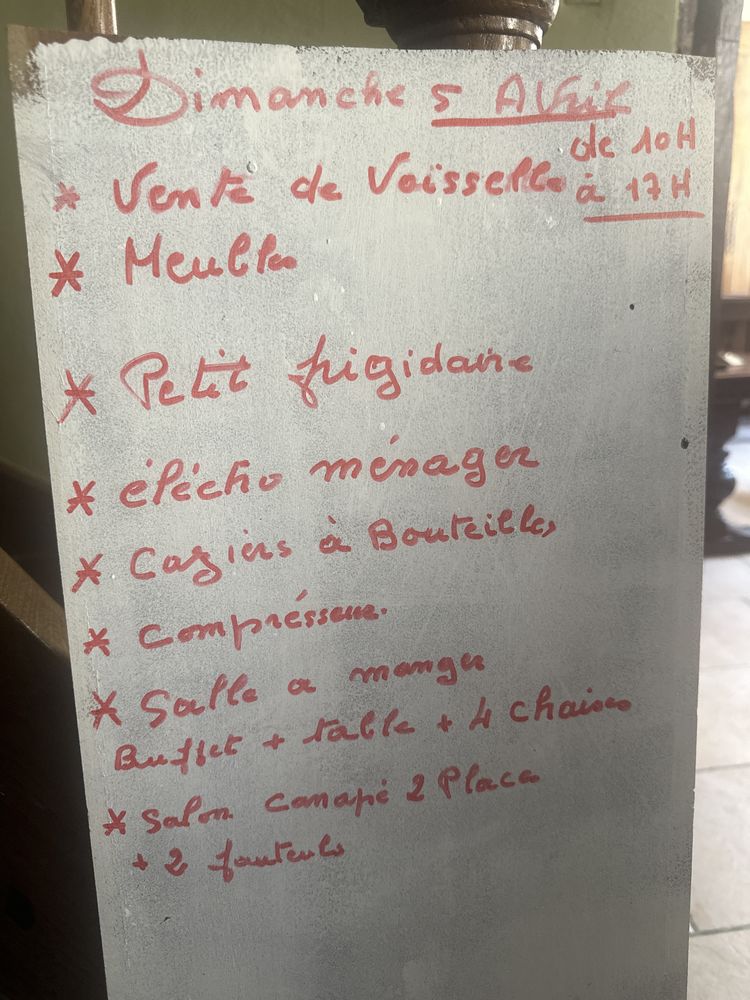 Dimanche 5 Avril
de 10H
* Vente de Vaisselle à 17H
* Meubles
* Petit frigidaire
* éléctro ménager
* Cagiers à Bouteilles
* Comprésseur.
* Salle a manger
Buffet + table + 4 chaises
* Salon canapé 2 Place
+ 2 fauteuls